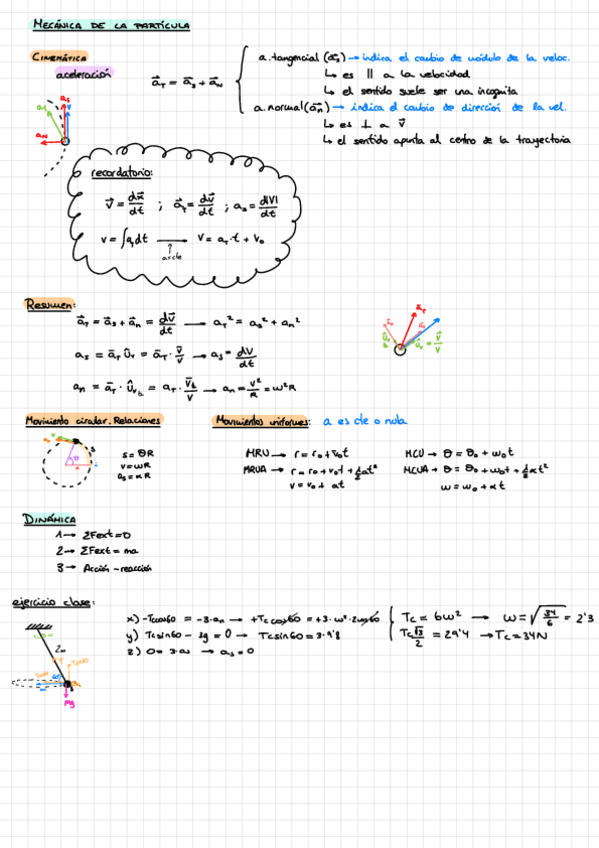 MECÁNICA DE LA PARTÍCULA
CINEMÁTICA
aceleración
a⃗T = a⃗s + a⃗N
a. tangencial (a⃗s) → indica el cambio de módulo de la veloc.
↳ es || a la velocidad
↳ el sentido suele ser una incognita
a. normal (a⃗n) → indica el cambio de dirección de la vel.
↳ es ⊥ a v⃗
↳ el sentido apunta al centro de la trayectoria
recordatorio:
v⃗ = dx⃗/dt ; a⃗T = dv⃗/dt ; as = d|V|/dt
v = ∫a dt → v = aT·t + v0
Resumen:
a⃗T = a⃗s + a⃗n = dv⃗/dt → aT² = as² + an²
as = a⃗T Ûv = a⃗T · v⃗/v → as = dV/dt
an = a⃗T · Ûv⊥ = aT · v⃗⊥/v → an = v²/R = ω²R
Movimiento circular. Relaciones
s = θR
v = ωR
as = αR
Movimientos uniformes: a es cte o nula
MRU → r = r0 + v0t
MRUA → r = r0 + v0t + ½at²
v = v0 + at
MCU → θ = θ0 + ω0t
MCUA → θ = θ0 + ω0t + ½αt²
ω = ω0 + αt
DINÁMICA
1 → ΣFext = 0
2 → ΣFext = ma
3 → Acción-reacción
ejercicio clase:
x) -Tccos60 = -3·an → +Tc cos60 = +3·ω²·2cos60
y) Tcsin60 - 3g = 0 → Tcsin60 = 3·9'8
z) 0 = 3·as → as = 0
Tc = 6ω² → ω = √34/6 = 2'3
Tc √3/2 = 29'4 → Tc = 34N
2m
mg